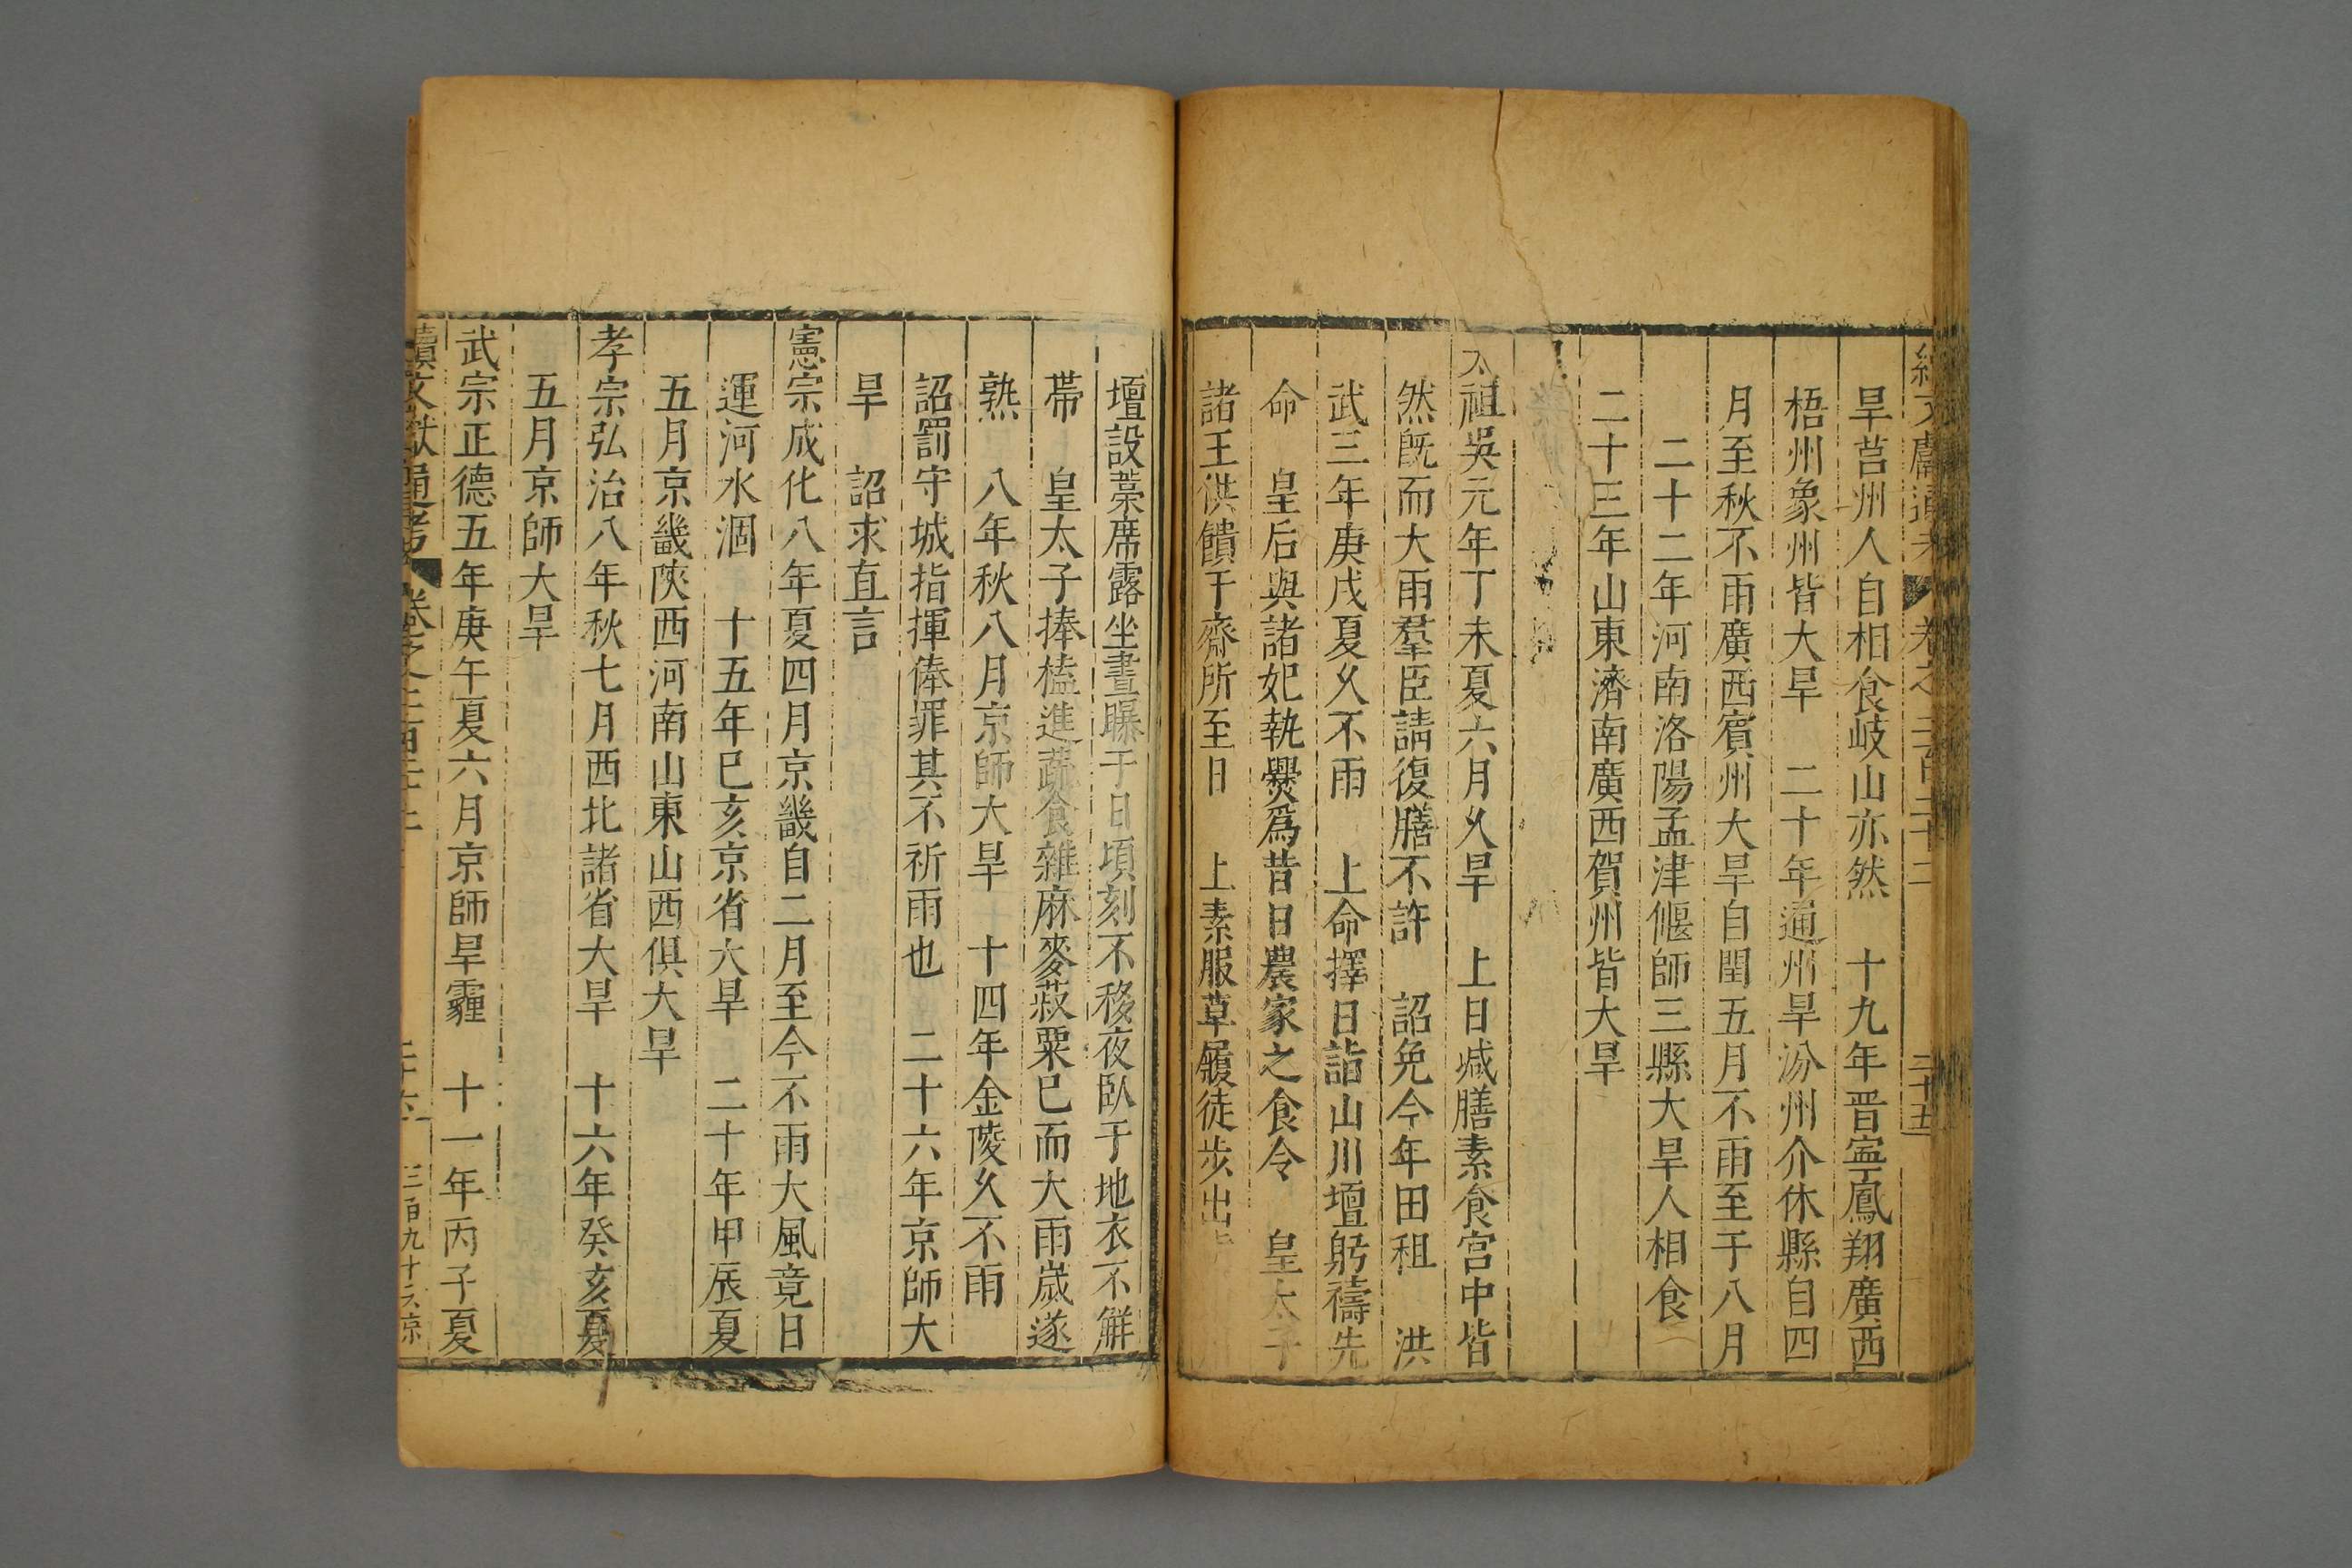 旱莒州人自相食岐山亦然　十九年晋寧鳳翔廣西
梧州象州皆大旱　二十年通州旱汾州介休縣自四
月至秋不雨廣西賓州大旱自閏五月不雨至于八月
二十二年河南洛陽孟津偃師三縣大旱人相食
二十三年山東濟南廣西賀州皆大旱
太祖吳元年丁未夏六月久旱　上日减膳素食宫中皆
然既而大雨羣臣請復膳不許　詔免今年田租　洪
武三年庚戌夏久不雨　上命擇日詣山川壇躬禱先
命　皇后與諸妃執爨爲昔日農家之食令　皇太子
諸王供饋于齋所至日　上素服草履徒步出
壇設藁席露坐晝曝于日頃刻不移夜臥于地衣不解
帶　皇太子捧榼進蔬食雜麻麥菽粟已而大雨嵗遂
熟　八年秋八月京師大旱　十四年金陵久不雨
詔罰守城指揮俸罪其不祈雨也　二十六年京師大
旱　詔求直言
憲宗成化八年夏四月京畿自二月至今不雨大風竟日
運河水涸　十五年己亥京省大旱　二十年甲辰夏
五月京畿陝西河南山東山西俱大旱
孝宗弘治八年秋七月西北諸省大旱　十六年癸亥夏
五月京師大旱
武宗正德五年庚午夏六月京師旱霾　十一年丙子夏
續文獻通考　卷之二百二十二　二十六　三百九十六京